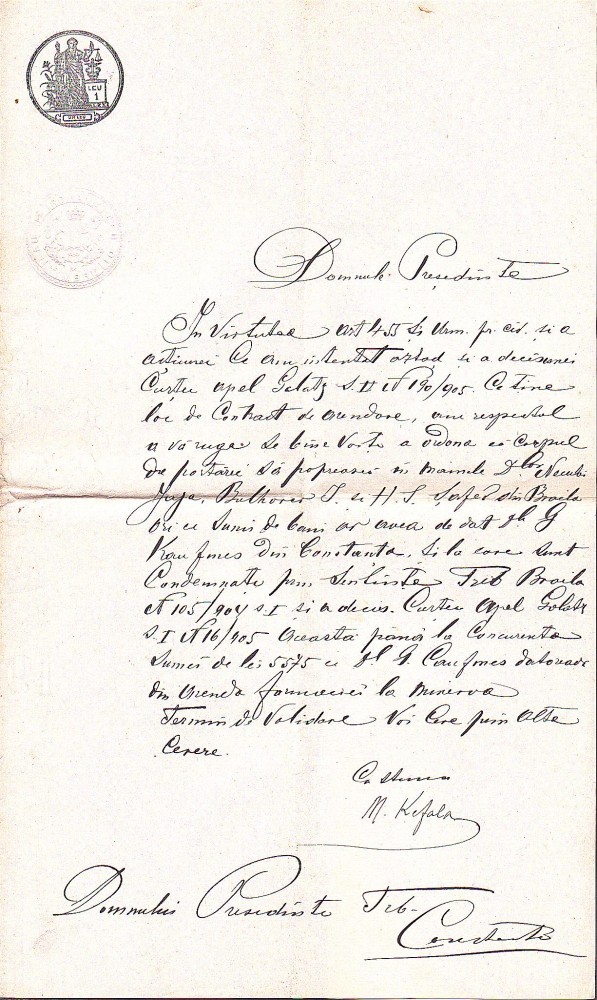 LEU
1
Domnule Președinte
In Virtutea art 455 și urm. pr. civ. și a
acțiunei ce am intentat astăd și a deciziunei
Curței apel Galatz S. II N 190/905. Ce tine
loc de Contract de arendare, am respectul
a vă ruga se bine voiți a ordona ca Corpul
de portărei să poprească în mainele D.lor Neculai
Jaja, Bulhover I. și H. S. Șafer din Braila
ori ce sumă de bani ar avea de dat dl G
Kaufmes din Constanta, și la care sunt
Condemnați prin Sentința Trib Braila
N 105/904 s. I și a decis. Curței apel Galatz
s. I N 16/905 aceasta pănă la Concurenta
Sumei de lei 5575 ce dl G. Caufmes datorează
din arenda farmaciei la Minerva
Termin de Validare Voi Cere prin Alta
Cerere.
Cu stima
M. Kefala
Domnului Președinte Trib.
Constanta